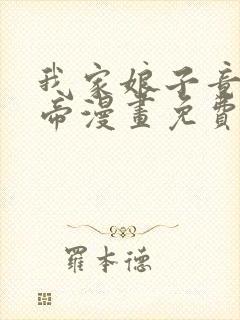 我家娘子竟
帝漫畫免費
羅本德